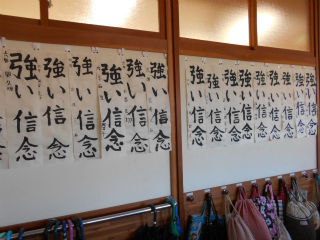 強い信念
強い信念
強い信念
強い信念
強い信念
強い信念
強い信念
強い信念
強い信念
強い信念
強い信念
強い信念
強い信念